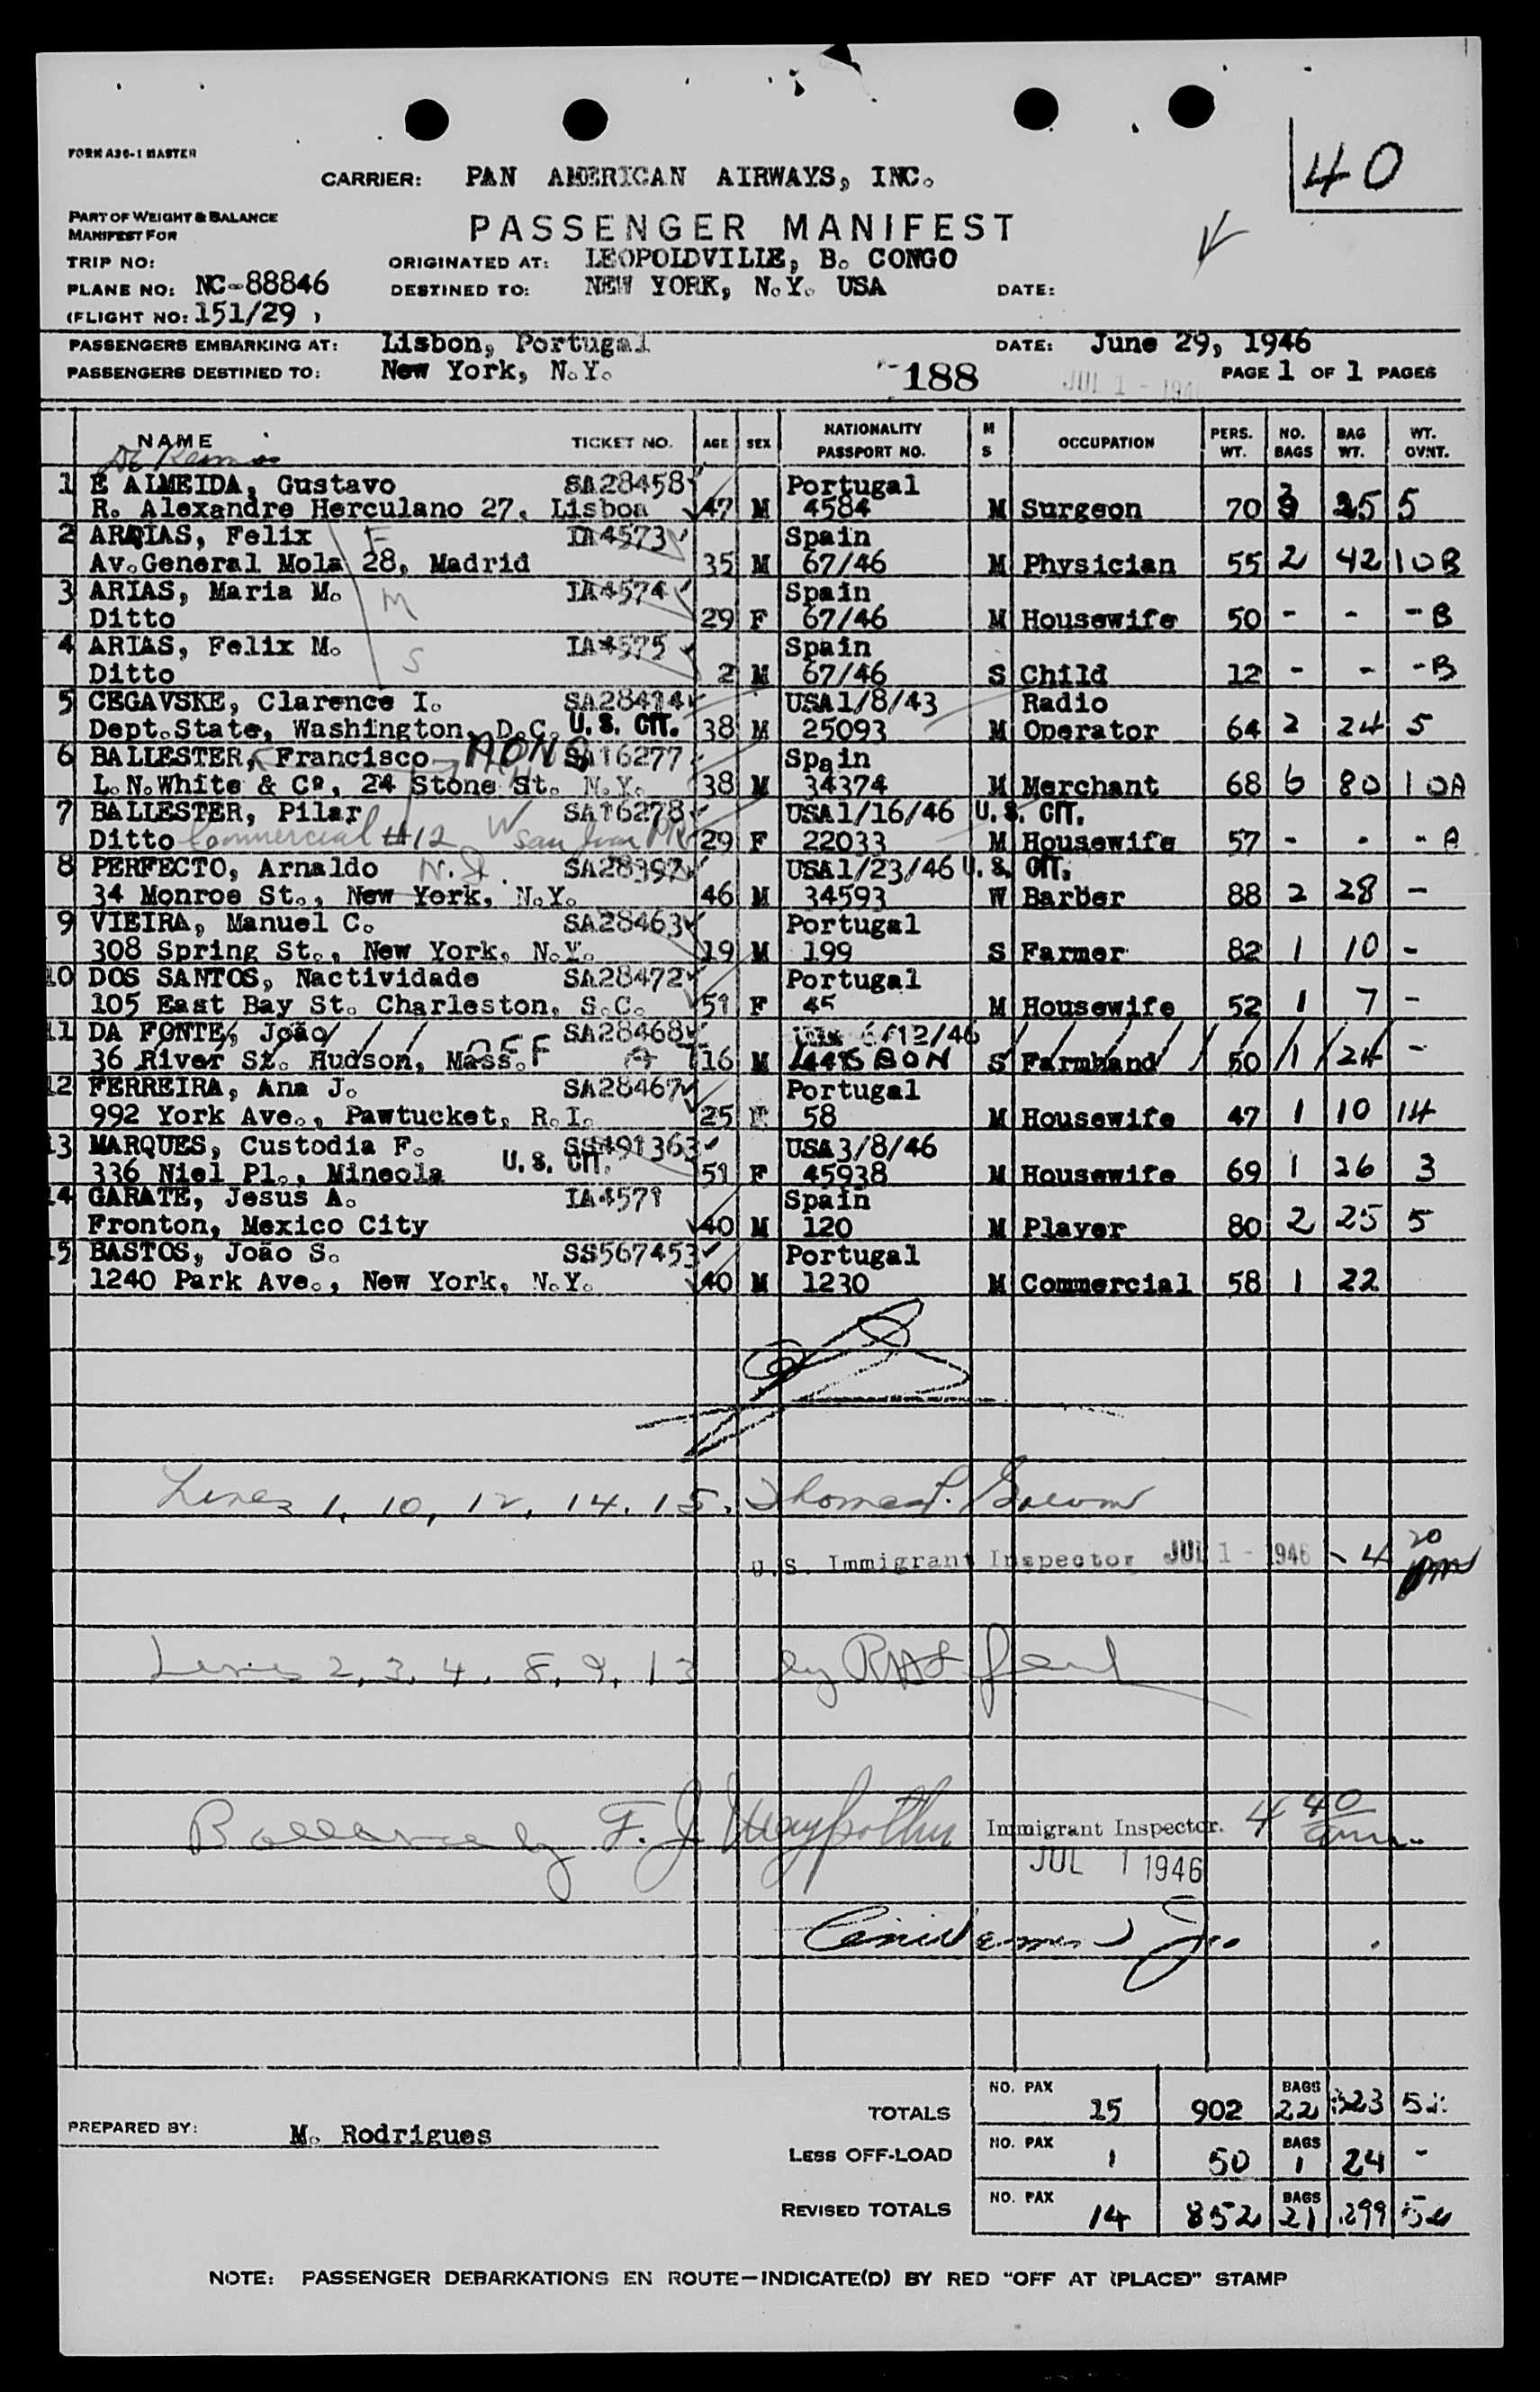 40
FORM A30-1 MASTER
CARRIER: PAN AMERICAN AIRWAYS, INC.
PART OF WEIGHT & BALANCE
MANIFEST FOR
PASSENGER MANIFEST
TRIP NO:
ORIGINATED AT: LEOPOLDVILLE, B. CONGO
PLANE NO: NC-88846
DESTINED TO: NEW YORK, N.Y. USA
DATE:
(FLIGHT NO: 151/29 )
PASSENGERS EMBARKING AT: Lisbon, Portugal
DATE: June 29, 1946
PASSENGERS DESTINED TO: New York, N.Y.
188
JUL 1 - 1946
PAGE 1 OF 1 PAGES
NAME TICKET NO. AGE SEX NATIONALITY PASSPORT NO. M S OCCUPATION PERS. WT. NO. BAGS BAG WT. WT. OVNT.
1 E ALMEIDA, Gustavo SA28458 Portugal
R. Alexandre Herculano 27, Lisbon 47 M 4584 M Surgeon 70 3 25 5
2 ARQIAS, Felix F IA4573 Spain
Av.General Mola 28, Madrid 35 M 67/46 M Physician 55 2 42 10B
3 ARIAS, Maria M. M IA4574 Spain
Ditto 29 F 67/46 M Housewife 50 - - -B
4 ARIAS, Felix M. S IA4575 Spain
Ditto 2 M 67/46 S Child 12 - - -B
5 CEGAVSKE, Clarence I. SA28414 USA1/8/43 Radio
Dept.State, Washington, D.C. U.S. CIT. 38 M 25093 M Operator 64 2 24 5
6 BALLESTER, Francisco SA16277 Spain
L.N.White & Cº, 24 Stone St. N.Y. 38 M 34374 M Merchant 68 6 80 10A
7 BALLESTER, Pilar SA16278 USA1/16/46 U.S. CIT.
Ditto Commercial #12 San Juan PR 29 F 22033 M Housewife 57 - - -A
8 PERFECTO, Arnaldo SA28392 USA1/23/46 U.S. CIT.
34 Monroe St., New York, N.Y. 46 M 34593 W Barber 88 2 28 -
9 VIEIRA, Manuel C. SA28463 Portugal
308 Spring St., New York, N.Y. 19 M 199 S Farmer 82 1 10 -
10 DOS SANTOS, Nactividade SA28472 Portugal
105 East Bay St. Charleston, S.C. 51 F 45 M Housewife 52 1 7 -
11 DA FONTE, João SA28468 6/12/46
36 River St. Hudson, Mass. OFF 16 M LISBON S Farmhand 50 1 24 -
12 FERREIRA, Ana J. SA28467 Portugal
992 York Ave., Pawtucket, R.I. 25 F 58 M Housewife 47 1 10 14
13 MARQUES, Custodia F. SS491363 USA3/8/46
336 Niel Pl., Mineola U.S. CIT. 51 F 45938 M Housewife 69 1 26 3
14 GARATE, Jesus A. IA4571 Spain
Fronton, Mexico City 40 M 120 M Player 80 2 25 5
15 BASTOS, João S. SS567453 Portugal
1240 Park Ave., New York, N.Y. 40 M 1230 M Commercial 58 1 22
Lines 1, 10, 12, 14, 15.
U.S. Immigrant Inspector JUL 1 - 1946 - 4 20 pm
Lines 2, 3, 4, 8, 9, 13 by
by F. J. Immigrant Inspector. 4 40
JUL 1 1946
TOTALS NO. PAX 15 902 BAGS 22 323 52
PREPARED BY: M. Rodrigues
LESS OFF-LOAD NO. PAX 1 50 BAGS 1 24 -
REVISED TOTALS NO. PAX 14 852 BAGS 21 299 52
NOTE: PASSENGER DEBARKATIONS EN ROUTE—INDICATE(D) BY RED "OFF AT (PLACE)" STAMP